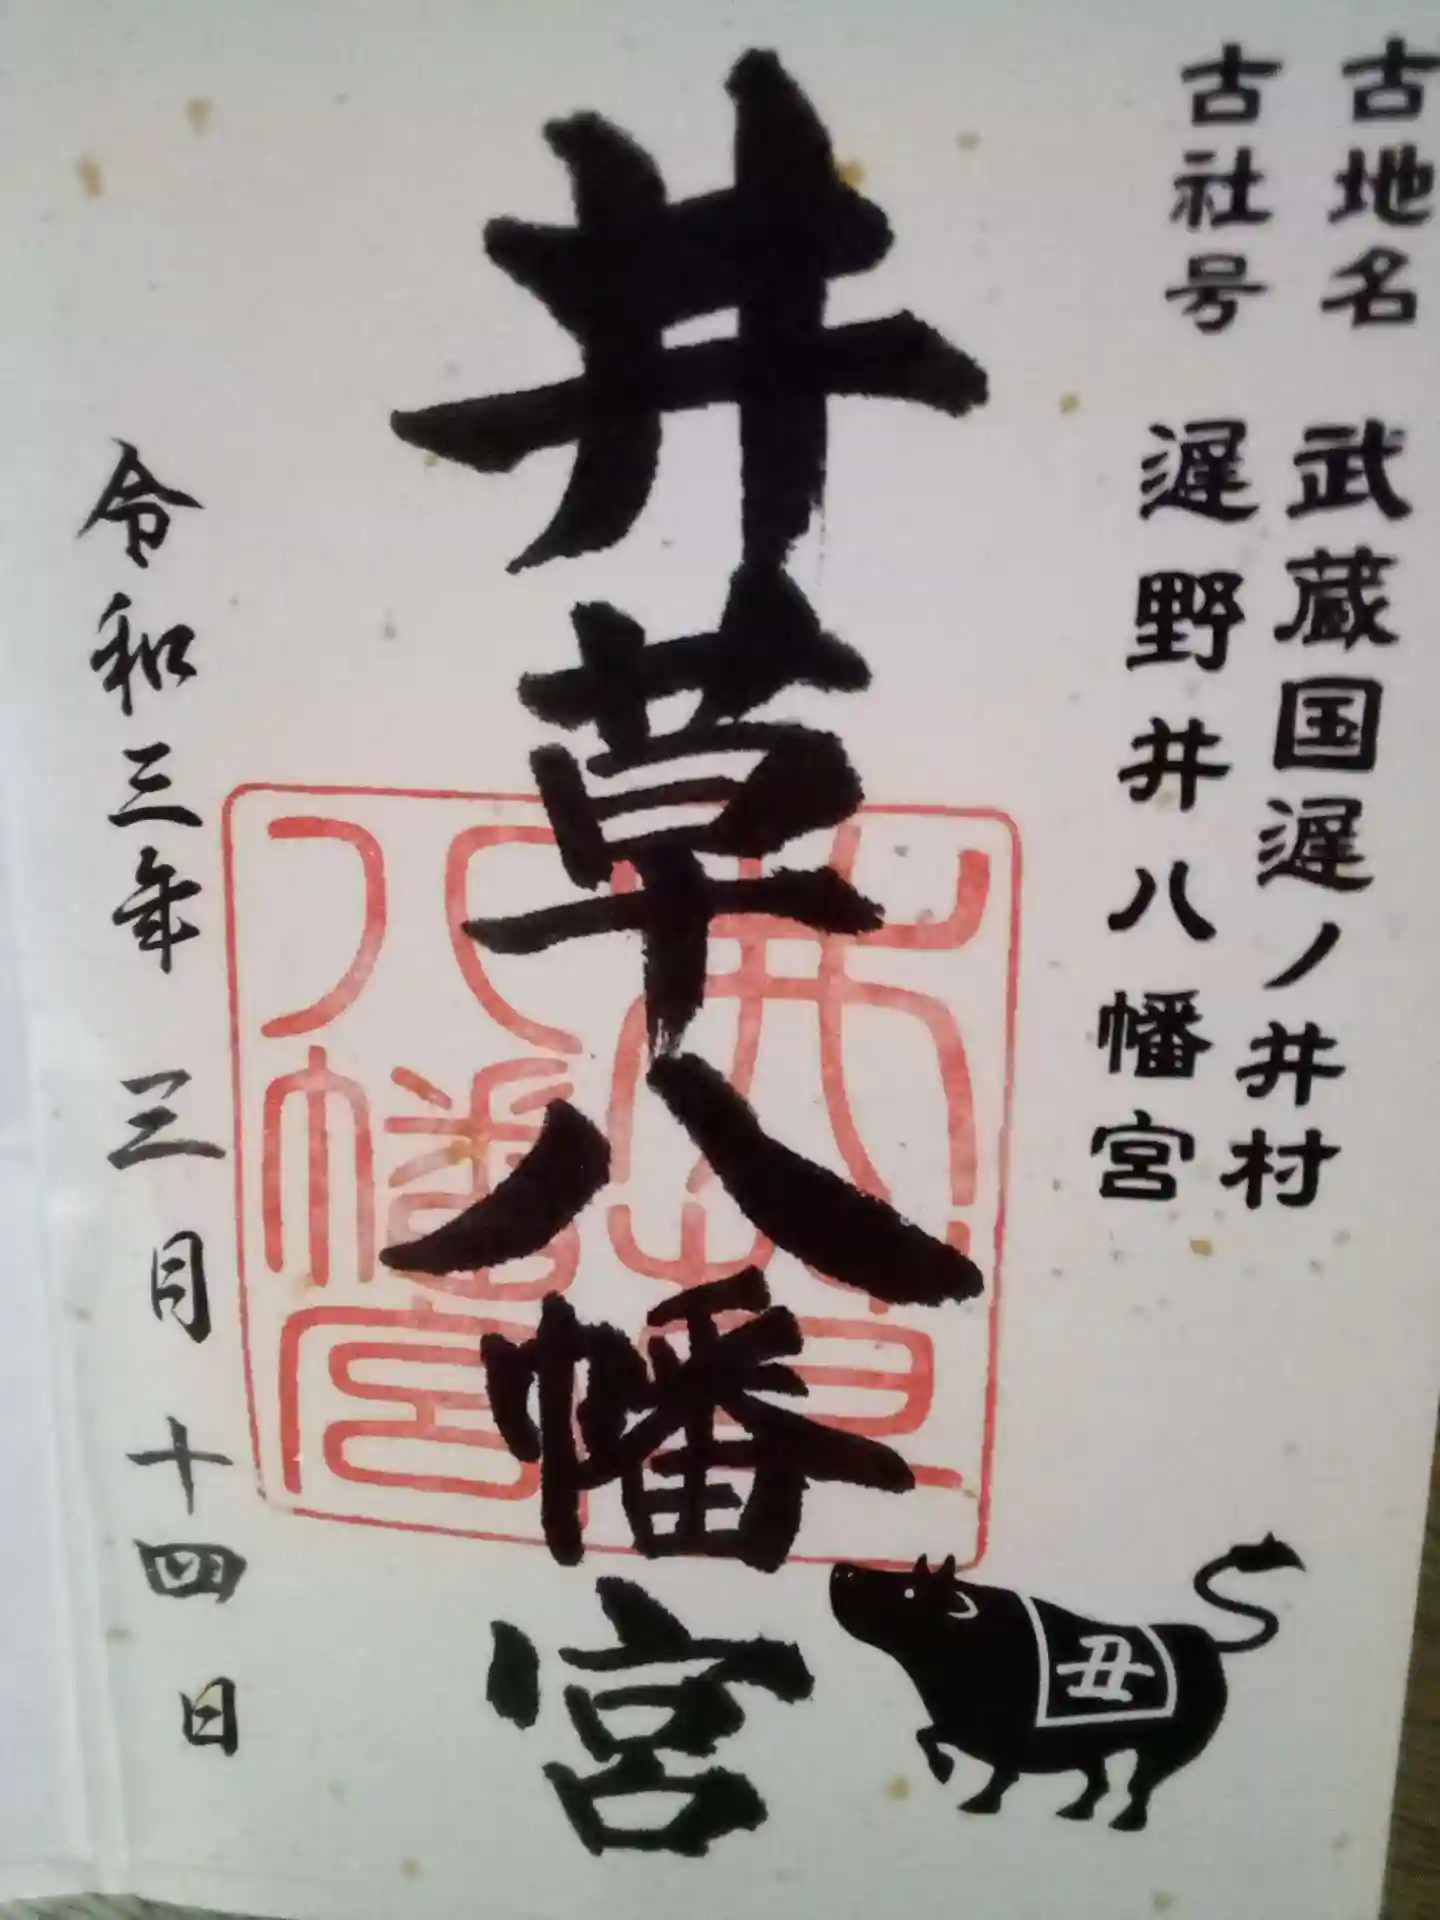 古地名 武蔵国遅ノ井村
古社号 遅野井八幡宮
井草八幡宮
井草八幡宮
令和三年 三月 十四日
丑